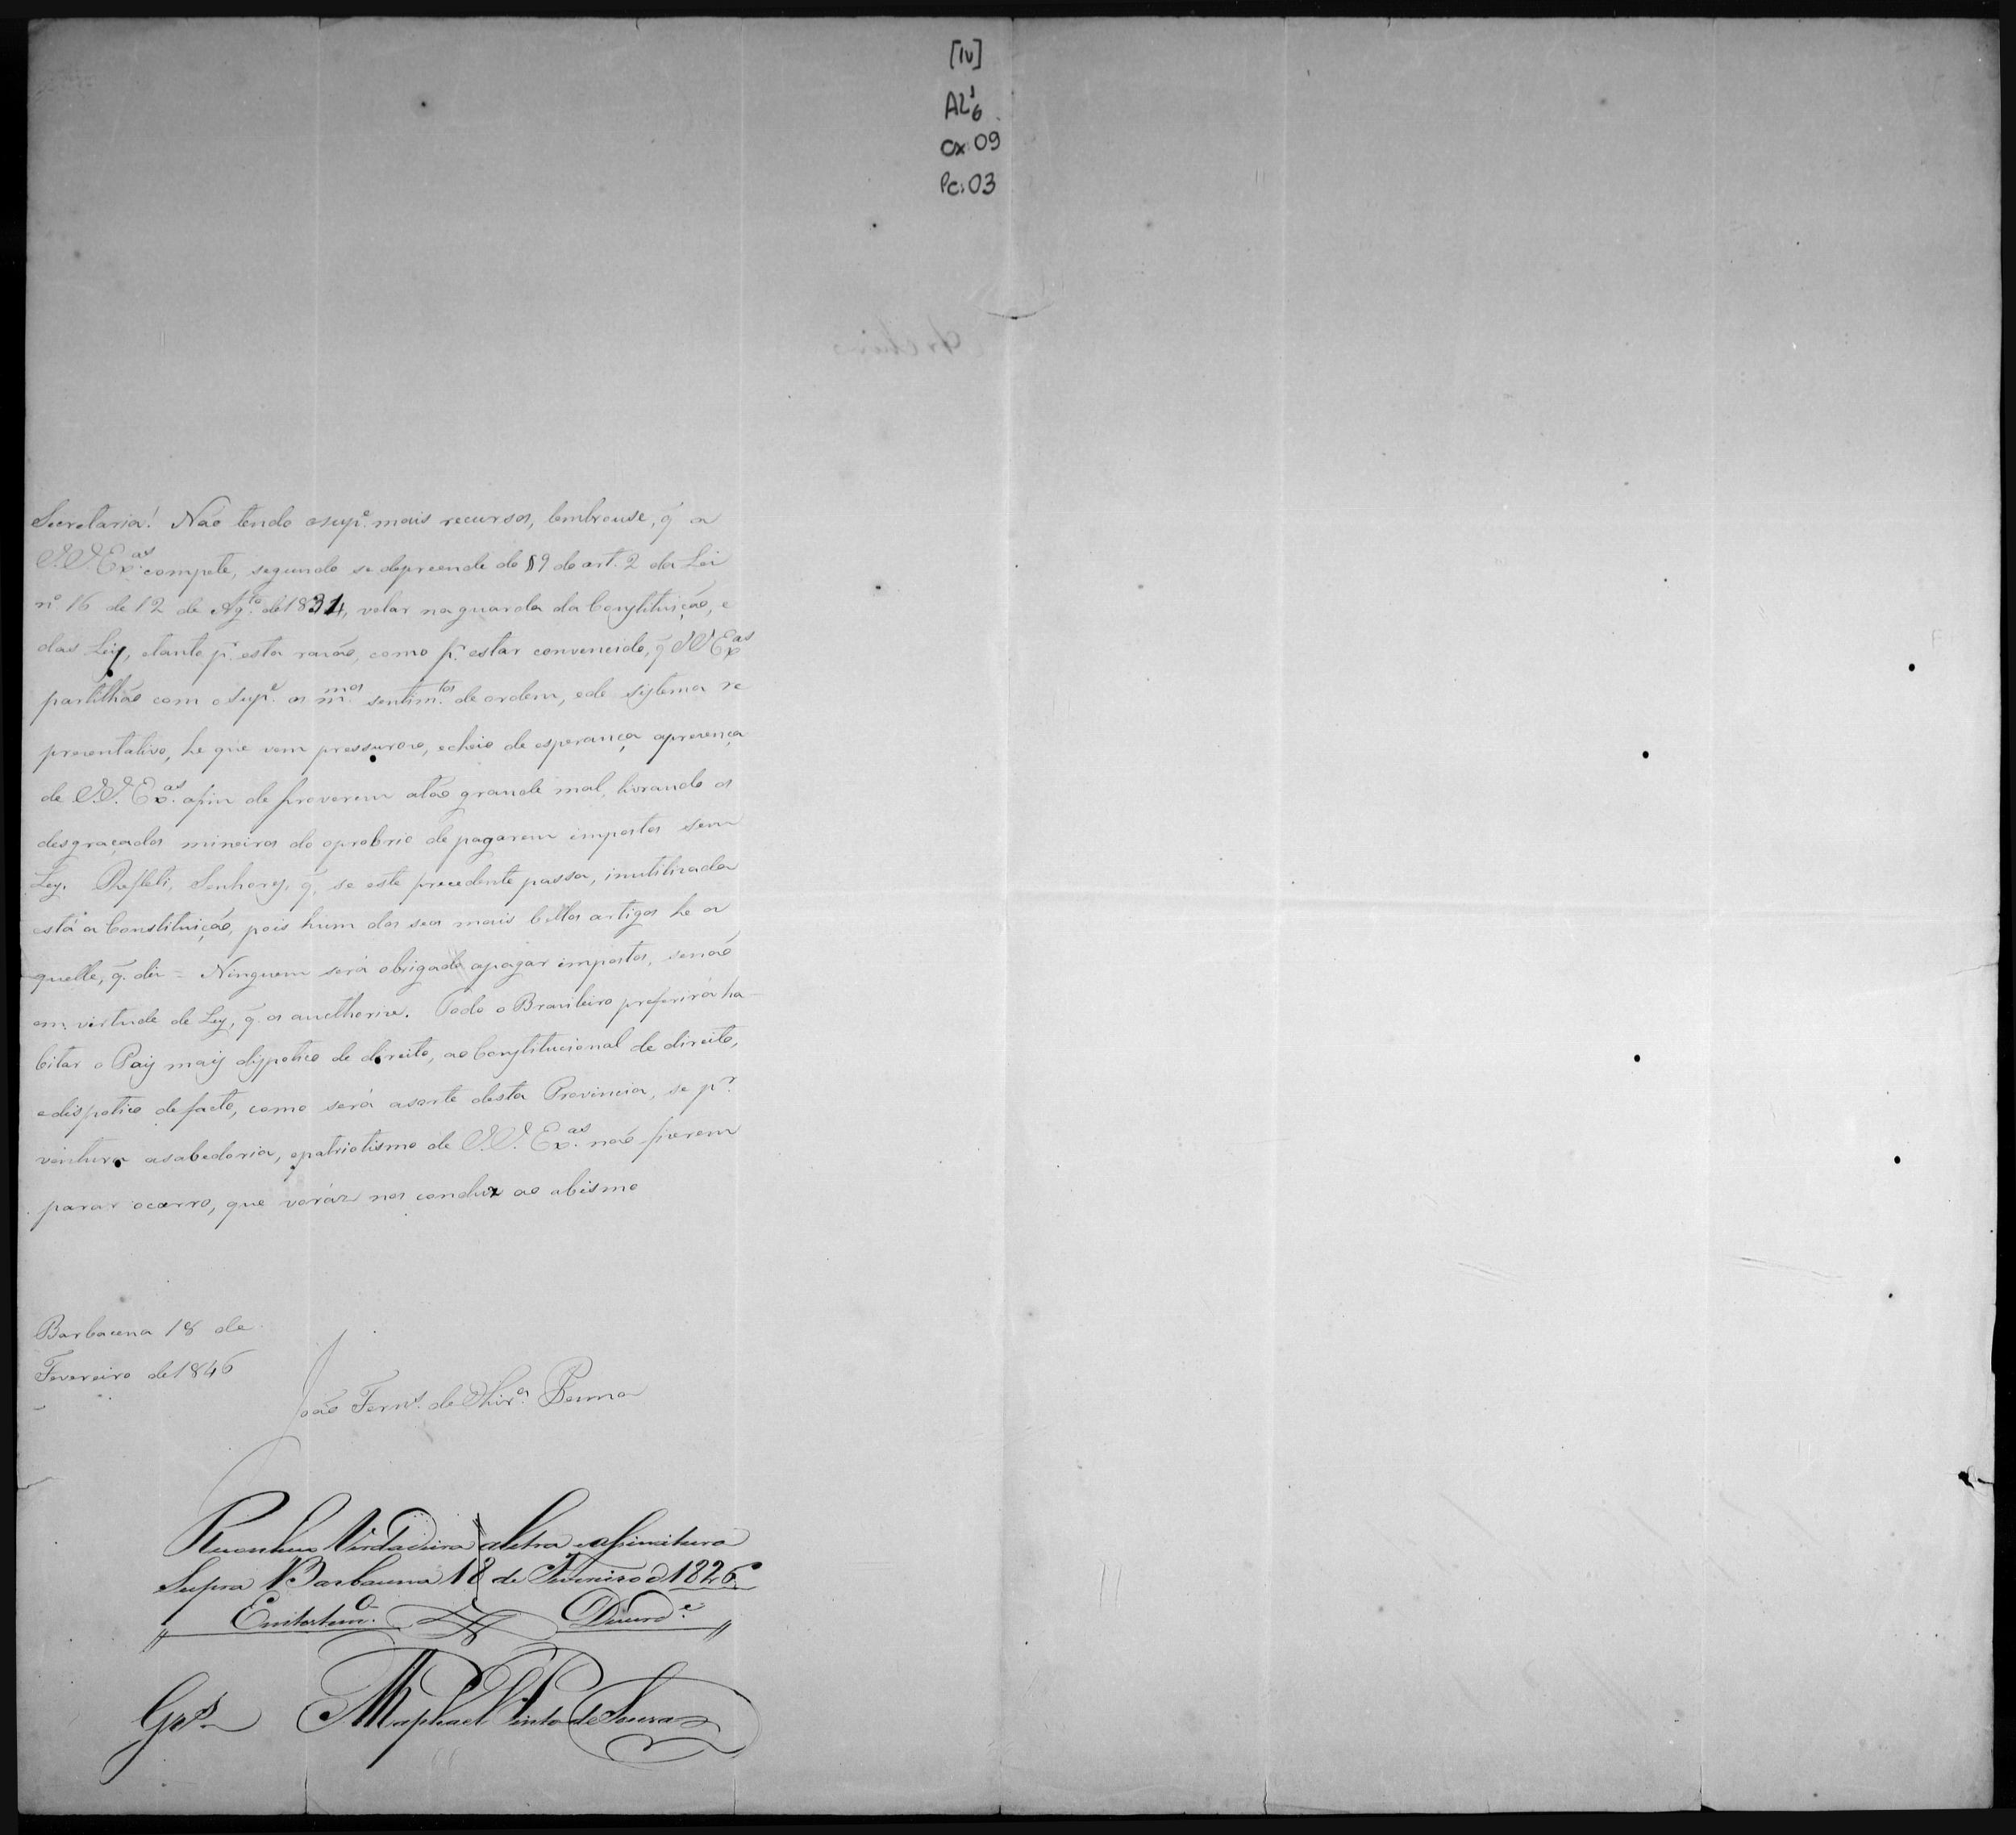 [IV]
AL¹6
cx 09
Pc: 03
Secretaria! Não tendo osupe. mais recursos, lembrouse, q̃ a
V.V. Exas. compete, segundo se depreende do §9 do art. 2 da Lei
nº 16 de 12 de Agto. de 1834, velar naguarda da Constituição, e
das Leis, etanto pr. esta razão, como pr. estar convencido, q̃ VVExas
partilhão com osupe. os mmos. sentimtos. de ordem, ede systema re
prezentativo, he que vem pressurozo, echeio de esperança aprezença
de V.V. Exas. afim de proverem atão grande mal, livrando os
desgraçados mineiros do oprobrio de pagarem impostos sem
Ley. Refleti, Senhores, q̃ se este precedente passa, inutilizada
está a Constituição, pois hum dos seos mais bellos artigos he a
quelle, q̃. diz = Ninguem será obrigado apagar impostos, senão
em virtude de Ley, q̃ os aucthorize. Todo o Brazileiro preferirá ha-
bitar o Pais mais dispotico de direito, ao Constitucional de direito,
edispotico defacto, como será asorte desta Provincia, se pr.
ventura asabedoria, epatriotismo de V.V. Exas. não fizerem
parar ocarro, que voráz nos conduz ao abismo
Barbacena 18 de
Fevereiro de 1846
João Fernes. de Olivra. Penna
Reconheço Verdadeira aletra eassinatura
Supra Barbacena 18 de Fevereiro d 1826
Emtestemo. Daverde.
Raphael Pinto de Souza